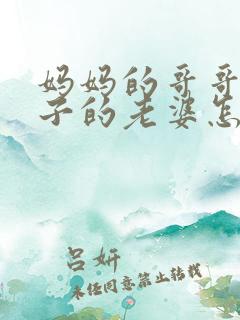 妈妈的哥哥
子的老婆怎
吕妍
未经同意禁止转载